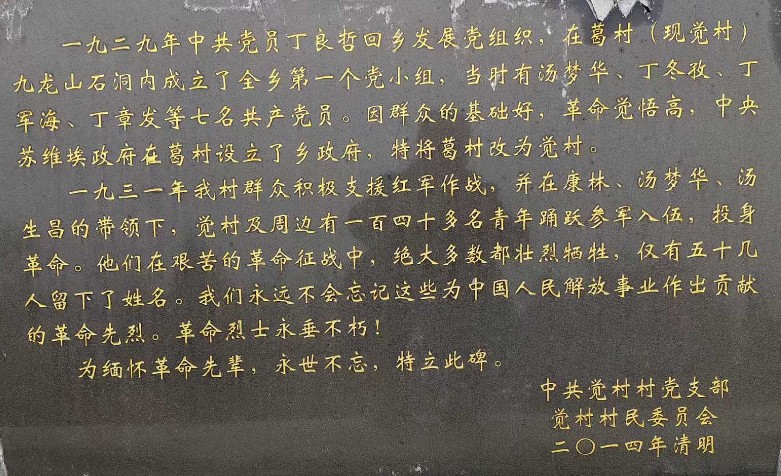 一九二九年中共党员丁良哲回乡发展党组织，在葛村（现觉村）
九龙山石洞内成立了全乡第一个党小组，当时有汤梦华、丁冬孜、丁
军海、丁章发等七名共产党员。因群众的基础好，革命觉悟高，中央
苏维埃政府在葛村设立了乡政府，特将葛村改为觉村。
一九三一年我村群众积极支援红军作战，并在康林、汤梦华、汤
生昌的带领下，觉村及周边有一百四十多名青年踊跃参军入伍，投身
革命。他们在艰苦的革命征战中，绝大多数都壮烈牺牲，仅有五十几
人留下了姓名。我们永远不会忘记这些为中国人民解放事业作出贡献
的革命先烈。革命烈士永垂不朽！
为缅怀革命先辈，永世不忘，特立此碑。
中共觉村村党支部
觉村村民委员会
二〇一四年清明